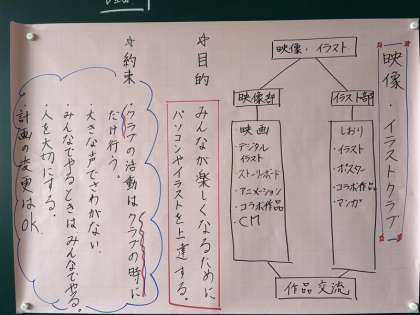 映像・イラストクラブ
映像・イラスト
映像部
映画
・デジタル
イラスト
ストーリーボード
・アニメーション
・コラボ作品
・CM
イラスト部
しおり
・イラスト
・ポスター
・コラボ作品
・マンガ
作品交流
☆目的
みんなが楽しくなるために
パソコンやイラストを上達する。
☆約束
・クラブの活動はクラブの時に
だけ行う。
・大きな声でさわがない
・みんなでやるときはみんなでやる。
・人を大切にする。
・計画の変更はOK